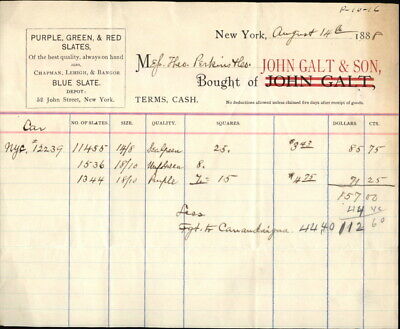 P-10-16
PURPLE, GREEN, & RED
SLATES,
Of the best quality, always on hand
ALSO,
CHAPMAN, LEHIGH, & BANGOR
BLUE SLATE.
DEPOT:
52 John Street, New York.
New York, August 14th 1888
Mess. Theo. Perkins & Co.
JOHN GALT & SON,
Bought of JOHN GALT,
TERMS, CASH.
No deductions allowed unless claimed five days after receipt of goods.
NO. OF SLATES. SIZE. QUALITY. SQUARES. DOLLARS CTS.
Car
NYC. #12239 11455 14/8 25. 85 75
1536 18/10 8.
1344 18/10 Purple 7 = 15 $4.75 71 25
157 00
Less 44 40
Fgt. to Canandaigua 44 40 112 60